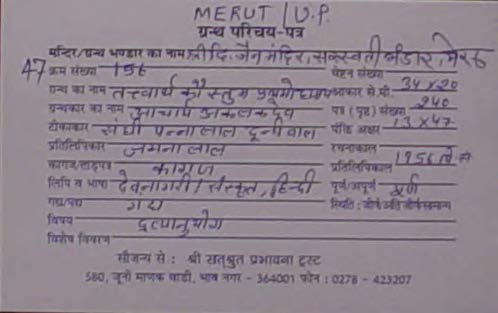 MERUT / U.P.
ग्रन्थ परिचय-पत्र
मन्दिर/ग्रन्थ भण्डार का नाम श्री दि. जैन मंदिर, सरस्वती भंडार, मेरठ
47 क्रम संख्या 156 वेष्टन संख्या
ग्रन्थ का नाम तत्त्वार्थ कौस्तुभ प्रथमोध्याय आकार से.मी. 34×20
ग्रन्थकार का नाम आचार्य अकलंकदेव पत्र (पृष्ठ) संख्या 240
टीकाकार संघी पन्नालाल दूनीवाल पंक्ति अक्षर 13×47
प्रतिलिपिकार जमनालाल रचनाकाल
कागज/ताड़पत्र कागज प्रतिलिपिकाल 1956
लिपि व भाषा देवनागरी / संस्कृत, हिन्दी पूर्ण/अपूर्ण पूर्ण
गद्य/पद्य गद्य स्थिति : जीर्ण/अति जीर्ण/सामान्य
विषय द्रव्यानुयोग
विशेष विवरण
सौजन्य से : श्री सत्श्रुत प्रभावना ट्रस्ट
580, जूनी माणक वाडी, भाव नगर - 364001 फोन : 0278 - 423207